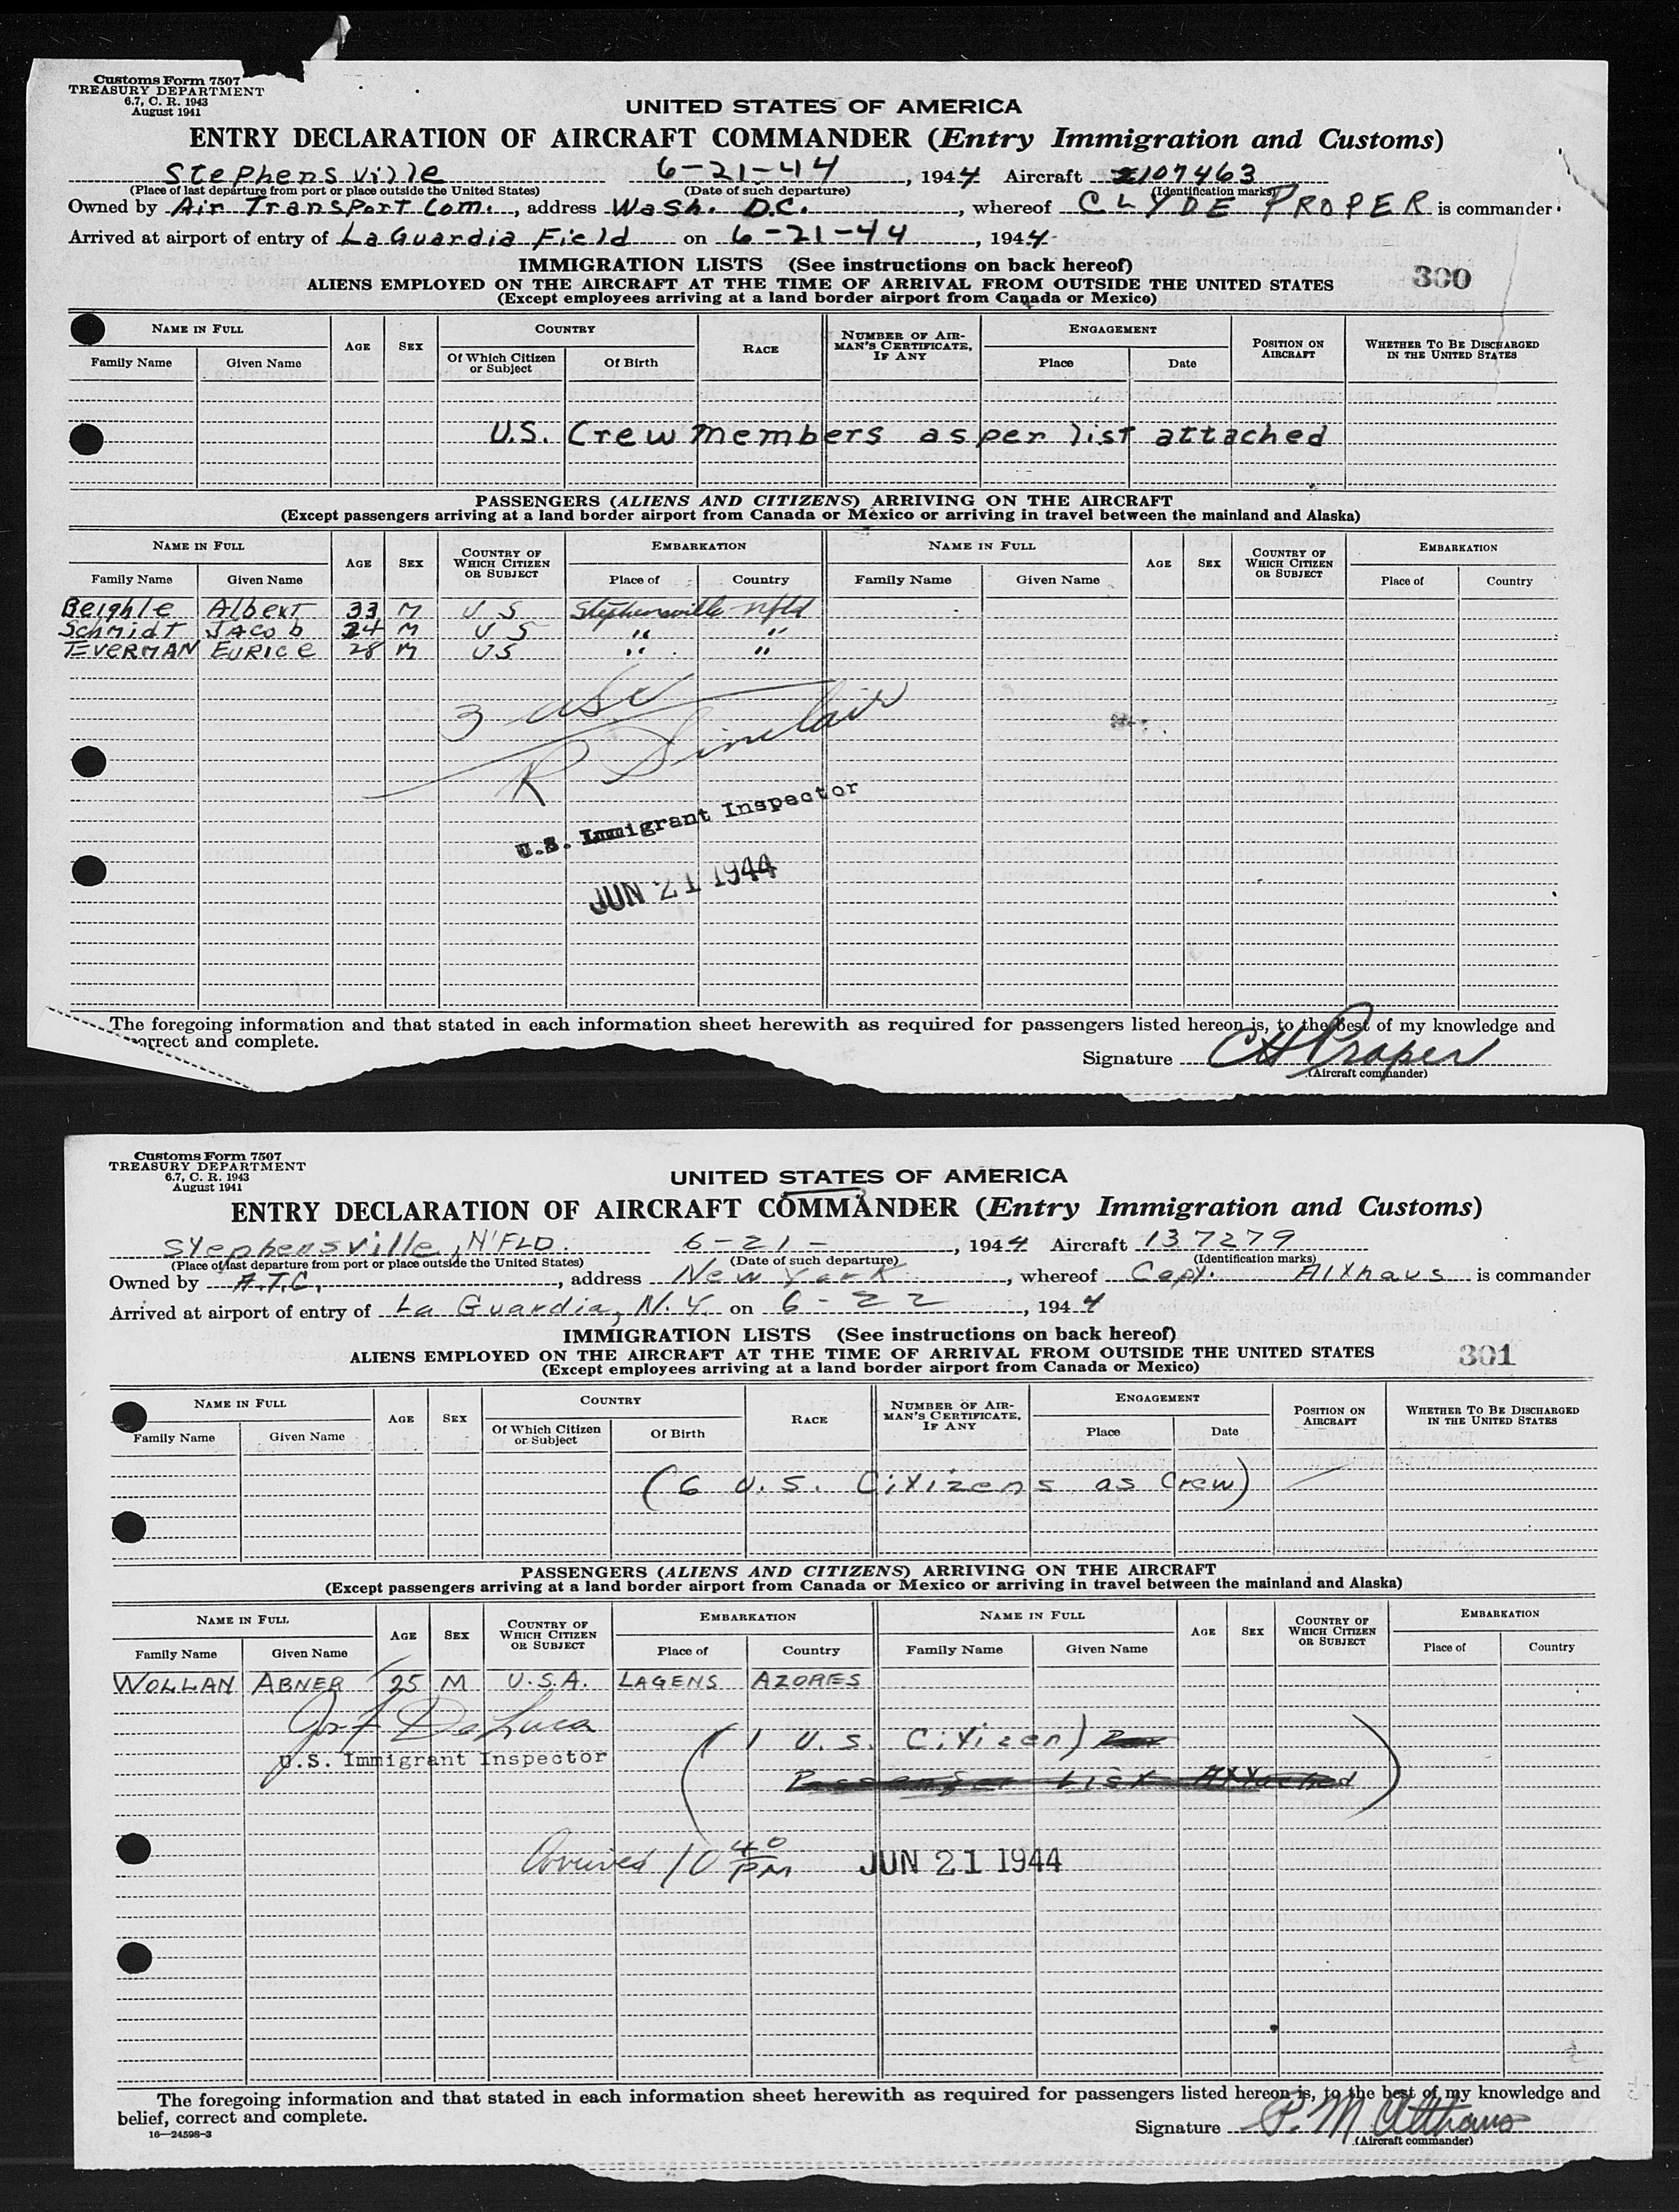 Customs Form 7507
TREASURY DEPARTMENT
6.7, C. R. 1943
August 1941
UNITED STATES OF AMERICA
ENTRY DECLARATION OF AIRCRAFT COMMANDER (Entry Immigration and Customs)
Stephensville 6-21-44, 1944 Aircraft 107463
(Place of last departure from port or place outside the United States) (Date of such departure) (Identification marks)
Owned by Air Transport Com., address Wash. D.C., whereof CLYDE PROPER is commander
Arrived at airport of entry of LaGuardia Field on 6-21-44, 1944
IMMIGRATION LISTS (See instructions on back hereof)
300
ALIENS EMPLOYED ON THE AIRCRAFT AT THE TIME OF ARRIVAL FROM OUTSIDE THE UNITED STATES
(Except employees arriving at a land border airport from Canada or Mexico)
NAME IN FULL AGE SEX COUNTRY RACE NUMBER OF AIRMAN'S CERTIFICATE, IF ANY ENGAGEMENT POSITION ON AIRCRAFT WHETHER TO BE DISCHARGED IN THE UNITED STATES
Family Name Given Name Of Which Citizen or Subject Of Birth Place Date
U.S. Crew members as per list attached
PASSENGERS (ALIENS AND CITIZENS) ARRIVING ON THE AIRCRAFT
(Except passengers arriving at a land border airport from Canada or Mexico or arriving in travel between the mainland and Alaska)
NAME IN FULL AGE SEX COUNTRY OF WHICH CITIZEN OR SUBJECT EMBARKATION NAME IN FULL AGE SEX COUNTRY OF WHICH CITIZEN OR SUBJECT EMBARKATION
Family Name Given Name Place of Country Family Name Given Name Place of Country
Beighle Albert 33 M U S Stephensville Nfld
Schmidt Jacob 24 M U S " "
EVERMAN EURICE 28 M US " "
3 usc
R Sinclair
U.S. Immigrant Inspector
JUN 21 1944
The foregoing information and that stated in each information sheet herewith as required for passengers listed hereon is, to the best of my knowledge and
correct and complete.
Signature CH Proper
(Aircraft commander)
Customs Form 7507
TREASURY DEPARTMENT
6.7, C. R. 1943
August 1941
UNITED STATES OF AMERICA
ENTRY DECLARATION OF AIRCRAFT COMMANDER (Entry Immigration and Customs)
Stephensville, N'FLD. 6-21-, 1944 Aircraft 137279
(Place of last departure from port or place outside the United States) (Date of such departure) (Identification marks)
Owned by A.T.C., address New York, whereof Capt. Althaus is commander
Arrived at airport of entry of La Guardia, N.Y. on 6-22, 1944
IMMIGRATION LISTS (See instructions on back hereof)
ALIENS EMPLOYED ON THE AIRCRAFT AT THE TIME OF ARRIVAL FROM OUTSIDE THE UNITED STATES
301
(Except employees arriving at a land border airport from Canada or Mexico)
NAME IN FULL AGE SEX COUNTRY RACE NUMBER OF AIRMAN'S CERTIFICATE, IF ANY ENGAGEMENT POSITION ON AIRCRAFT WHETHER TO BE DISCHARGED IN THE UNITED STATES
Family Name Given Name Of Which Citizen or Subject Of Birth Place Date
(6 U.S. Citizens as Crew)
PASSENGERS (ALIENS AND CITIZENS) ARRIVING ON THE AIRCRAFT
(Except passengers arriving at a land border airport from Canada or Mexico or arriving in travel between the mainland and Alaska)
NAME IN FULL AGE SEX COUNTRY OF WHICH CITIZEN OR SUBJECT EMBARKATION NAME IN FULL AGE SEX COUNTRY OF WHICH CITIZEN OR SUBJECT EMBARKATION
Family Name Given Name Place of Country Family Name Given Name Place of Country
WOLLAN ABNER 25 M U.S.A. LAGENS AZORES
Jos F DeLuca
(1 U.S. Citizen)
U.S. Immigrant Inspector
Passenger List Attached
Arrived 10 40 PM JUN 21 1944
The foregoing information and that stated in each information sheet herewith as required for passengers listed hereon is, to the best of my knowledge and
belief, correct and complete.
16—24598-3
Signature P. M Althaus
(Aircraft commander)